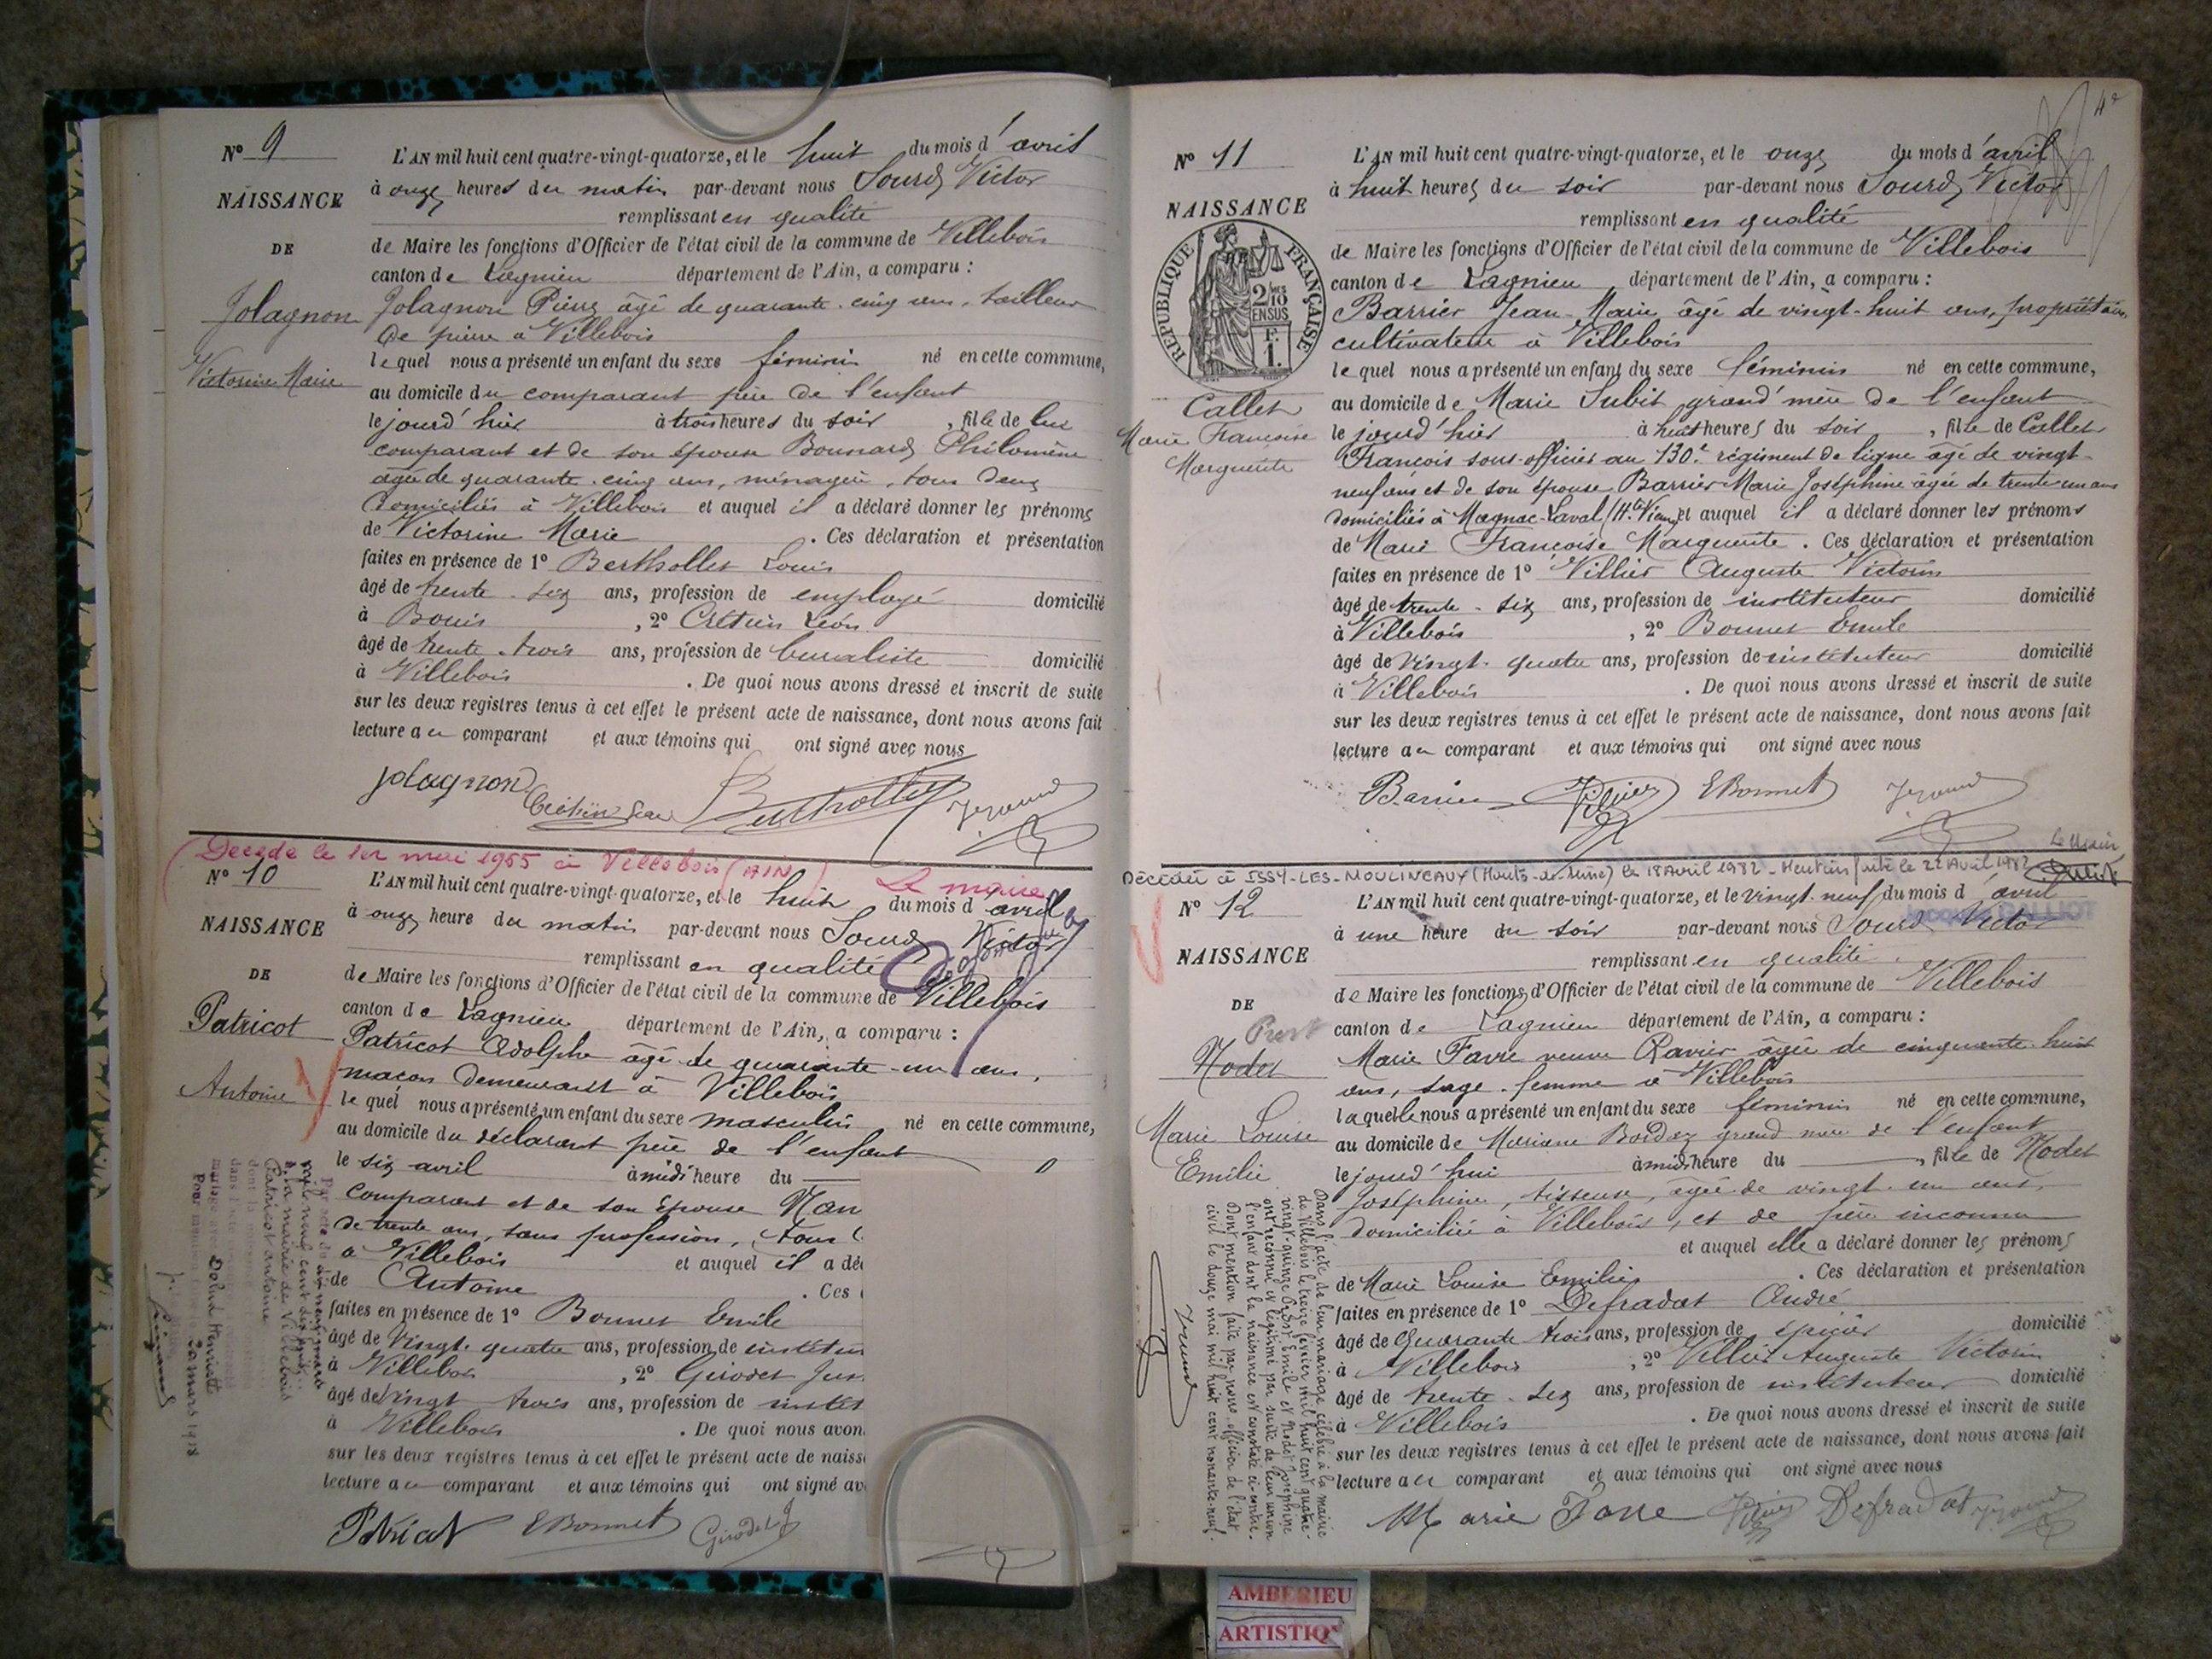 N° 9
NAISSANCE
DE
Jolagnon
Victorine Marie
L'AN mil huit cent quatre-vingt-quatorze, et le huit du mois d'avril
à onze heures du matin par-devant nous Sourd Victor
remplissant en qualité
de Maire les fonctions d'Officier de l'état civil de la commune de Villebois
canton de Lagnieu département de l'Ain, a comparu :
Jolagnon Pierre âgé de quarante-cinq ans, tailleur
de pierre à Villebois
lequel nous a présenté un enfant du sexe féminin né en cette commune,
au domicile du comparant père de l'enfant
le jourd'hier à trois heures du soir, fille de lui
comparant et de son épouse Bonnard Philomène
âgée de quarante-cinq ans, ménagère, tous deux
domiciliés à Villebois et auquel il a déclaré donner les prénoms
de Victorine Marie. Ces déclaration et présentation
faites en présence de 1° Berthollet Louis
âgé de trente-six ans, profession de employé domicilié
à Bouis, 2° Crétin Léon
âgé de trente-trois ans, profession de buraliste domicilié
à Villebois. De quoi nous avons dressé et inscrit de suite
sur les deux registres tenus à cet effet le présent acte de naissance, dont nous avons fait
lecture au comparant et aux témoins qui ont signé avec nous
Jolagnon Crétin Léon Berthollet
Décédé le 1er mai 1955 à Villebois (AIN) Le maire
N° 10
NAISSANCE
DE
Patricot
Antoine
L'AN mil huit cent quatre-vingt-quatorze, et le huit du mois d'avril
à onze heure du matin par-devant nous Sourd Victor
remplissant en qualité
de Maire les fonctions d'Officier de l'état civil de la commune de Villebois
canton de Lagnieu département de l'Ain, a comparu :
Patricot Adolphe âgé de quarante-un ans,
maçon demeurant à Villebois
lequel nous a présenté un enfant du sexe masculin né en cette commune,
au domicile du déclarant père de l'enfant
le six avril à midi heure du
comparant et de son épouse Nan
de trente ans, sans profession, tous
à Villebois et auquel il a dé
de Antoine. Ces
faites en présence de 1° Bonnet Emile
âgé de vingt-quatre ans, profession de institu
à Villebois, 2° Girodet
âgé de vingt trois ans, profession de instit
à Villebois. De quoi nous avon
sur les deux registres tenus à cet effet le présent acte de naiss
lecture au comparant et aux témoins qui ont signé av
Patricot E Bonnet Girodet J
mil neuf cent dix
à la mairie de Villebois
Patricot Antoine
Delind Henriette
20 mars 1918
4e
N° 11
NAISSANCE
RÉPUBLIQUE FRANÇAISE
2/10
EN SUS
F.
1.
Callet
Marie Françoise
Marguerite
L'AN mil huit cent quatre-vingt-quatorze, et le onze du mois d'avril
à huit heures du soir par-devant nous Sourd Victor
remplissant en qualité
de Maire les fonctions d'Officier de l'état civil de la commune de Villebois
canton de Lagnieu département de l'Ain, a comparu :
Barrier Jean-Marie âgé de vingt-huit ans, propriétaire
cultivateur à Villebois
lequel nous a présenté un enfant du sexe féminin né en cette commune,
au domicile de Marie Subit grand'mère de l'enfant
le jourd'hier à huit heures du soir, fille de Callet
François sous-officier au 130e régiment de ligne âgé de vingt-
neuf ans et de son épouse Barrier Marie Joséphine âgée de trente un ans
domiciliés à Magnac-Laval (Hte Vienne) et auquel il a déclaré donner les prénoms
de Marie Françoise Marguerite. Ces déclaration et présentation
faites en présence de 1° Villier Auguste Victorin
âgé de trente-six ans, profession de instituteur domicilié
à Villebois, 2° Bonnet Emile
âgé de vingt-quatre ans, profession de instituteur domicilié
à Villebois. De quoi nous avons dressé et inscrit de suite
sur les deux registres tenus à cet effet le présent acte de naissance, dont nous avons fait
lecture au comparant et aux témoins qui ont signé avec nous
Barrier Villier E Bonnet
Le Maire
Décédée à ISSY-LES-MOULINEAUX (Hauts-de-Seine) le 18 Avril 1982 - Mention faite le 22 Avril 1982
N° 12
NAISSANCE
DE
Prost
Nodet
Marie Louise
Emilie
L'AN mil huit cent quatre-vingt-quatorze, et le vingt-neuf du mois d'avril
à une heure du soir par-devant nous Sourd Victor
remplissant en qualité
de Maire les fonctions d'Officier de l'état civil de la commune de Villebois
canton de Lagnieu département de l'Ain, a comparu :
Marie Favre veuve Ravier âgée de cinquante-huit
ans, sage-femme à Villebois
laquelle nous a présenté un enfant du sexe féminin né en cette commune,
au domicile de Mariane Bordaz grand mère de l'enfant
le jourd'hui à midi heure du, fille de Nodet
Joséphine, tisseuse, âgée de vingt-un ans,
domiciliée à Villebois, et de père inconnu
et auquel elle a déclaré donner les prénoms
de Marie Louise Emilie. Ces déclaration et présentation
faites en présence de 1° Defradat André
âgé de quarante trois ans, profession de épicier domicilié
à Villebois, 2° Villier Auguste Victorin
âgé de trente-six ans, profession de instituteur domicilié
à Villebois. De quoi nous avons dressé et inscrit de suite
sur les deux registres tenus à cet effet le présent acte de naissance, dont nous avons fait
lecture au comparant et aux témoins qui ont signé avec nous
Marie Favre Villier Defradat
Dans l'acte de leur mariage célébré à la mairie
de Villebois le treize février mil huit cent quatre-
vingt-quinze Prost Emile et Nodet Joséphine
ont reconnu et légitimé par suite de leur union
l'enfant dont la naissance est constatée ci-contre.
Dont mention faite par nous, officier de l'état
civil le douze mai mil huit cent nonante-neuf.
AMBERIEU
ARTISTIQ